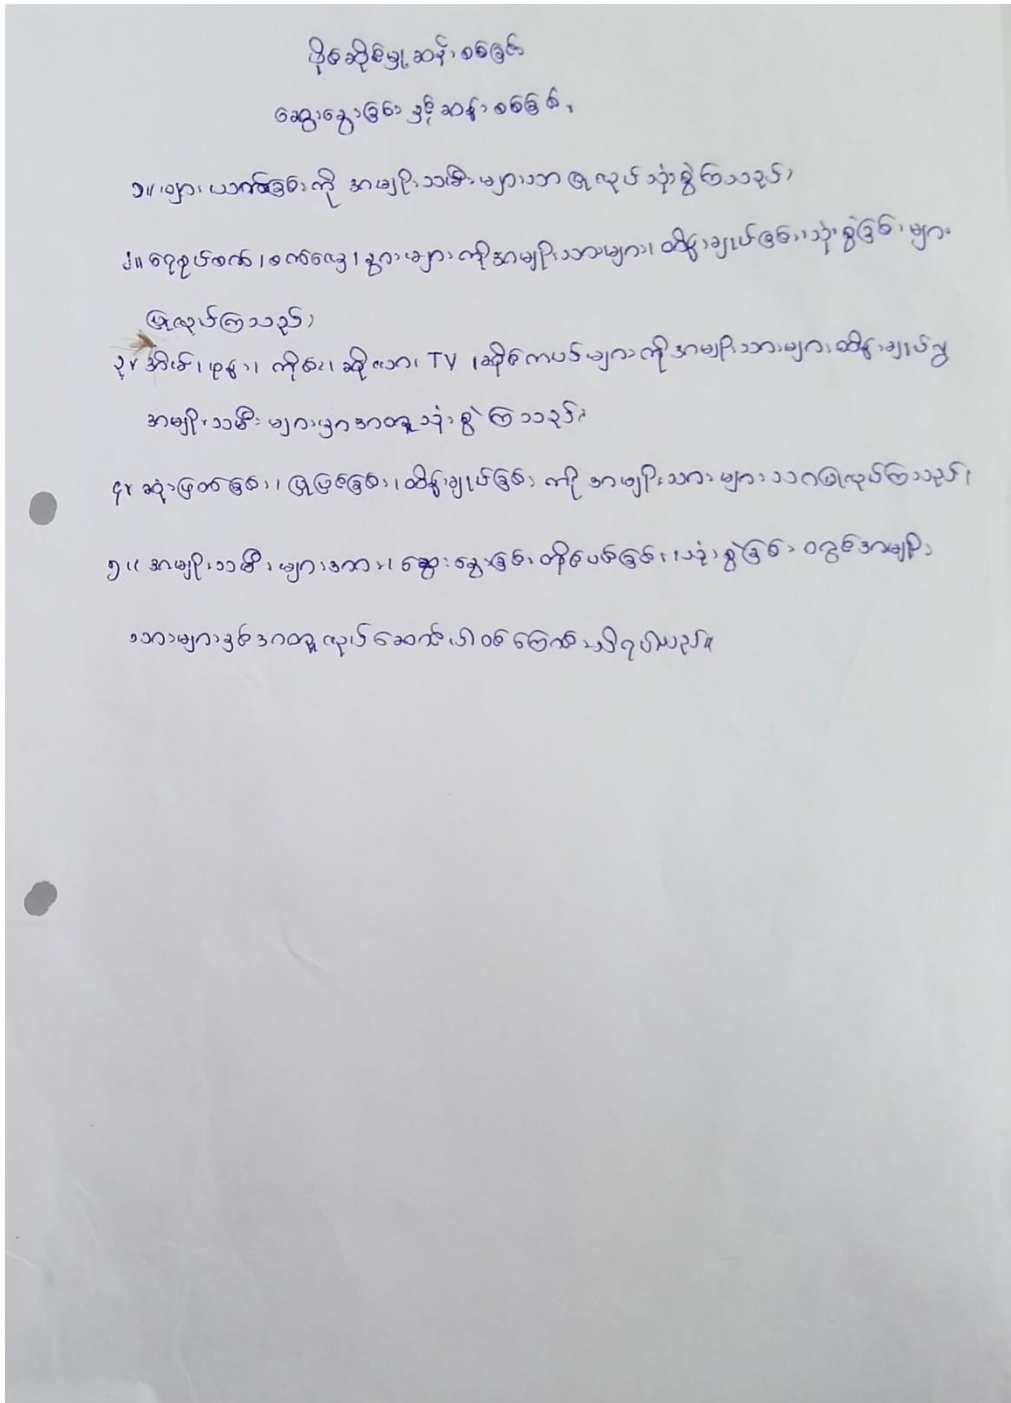 ပိုင်ဆိုင်မှု ဆန်းစစ်ခြင်း
ဆွေးနွေးခြင်း နှင့် ဆန်းစစ်ခြင်း
၁။ ဖျာယက်ခြင်းကို အမျိုးသမီးများသာ ပြုလုပ်သုံးစွဲကြသည်၊
၂။ ရေစုပ်စက်၊ စက်လှေ၊ နွားများကိုအမျိုးသားများ၊ ထိန်းချုပ်ခြင်း၊ သုံးစွဲခြင်းများ
ပြုလုပ်ကြသည်၊
၃။ အိမ်၊ ဖုန်း၊ ကိုင်း၊ ဆိုလာ၊ TV ၊ဆိုင်ကယ်များကိုအမျိုးသားများထိန်းချုပ်၍
အမျိုးသမီးများမှာအတူသုံးစွဲကြသည်၊
၄။ ဆုံးဖြတ်ခြင်း၊ ပြုပြင်ခြင်း၊ ထိန်းချုပ်ခြင်း ကို အမျိုးသားများသာပြုလုပ်ကြသည်၊
၅။ အမျိုးသမီးများအား၊ ဆွေးနွေးခြင်းတိုင်ပင်ခြင်း၊ သုံးစွဲခြင်း တွင်အမျိုး
သားများနှင့်အတူလုပ်ဆောင်ပါဝင်ကြောင်းသိရပါသည်။